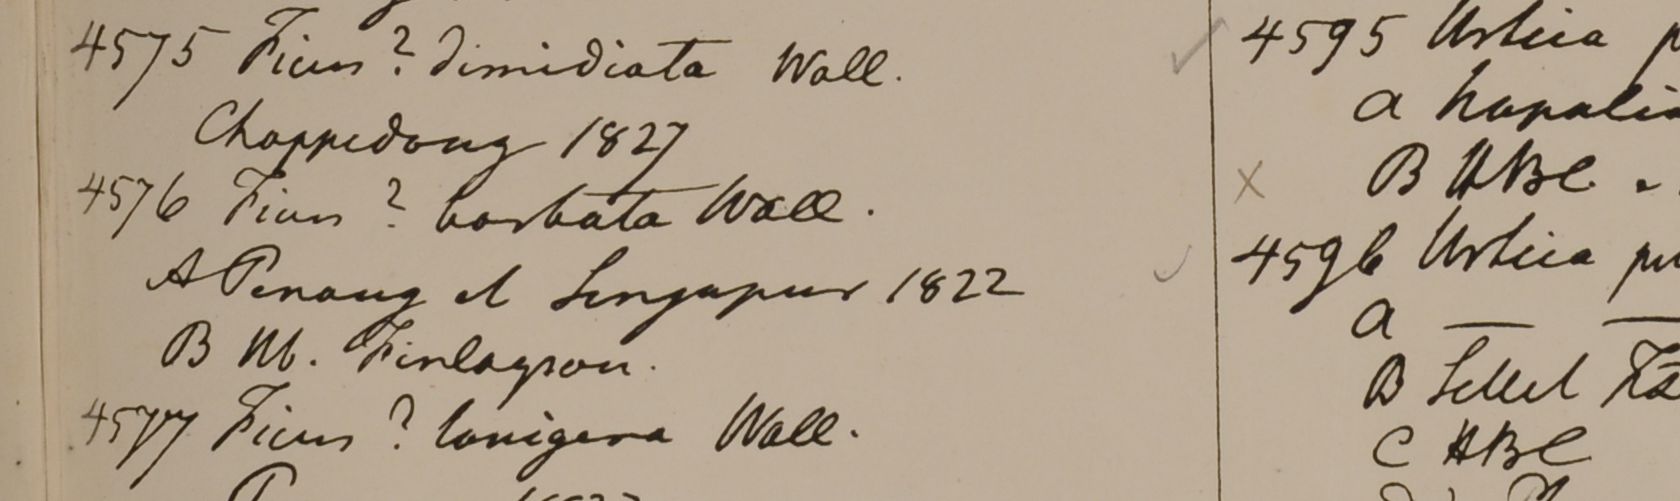 4575 Ficus? dimidiata Wall.
Chappedong 1827
4576 Ficus? barbata Wall.
A Penang et Singapur 1822
B Hb. Finlayson.
4577 Ficus? lanigera Wall.
4595 Urtica p
a
B HBC.
4596 Urtica pu
a — —
B Sillet
C HBC